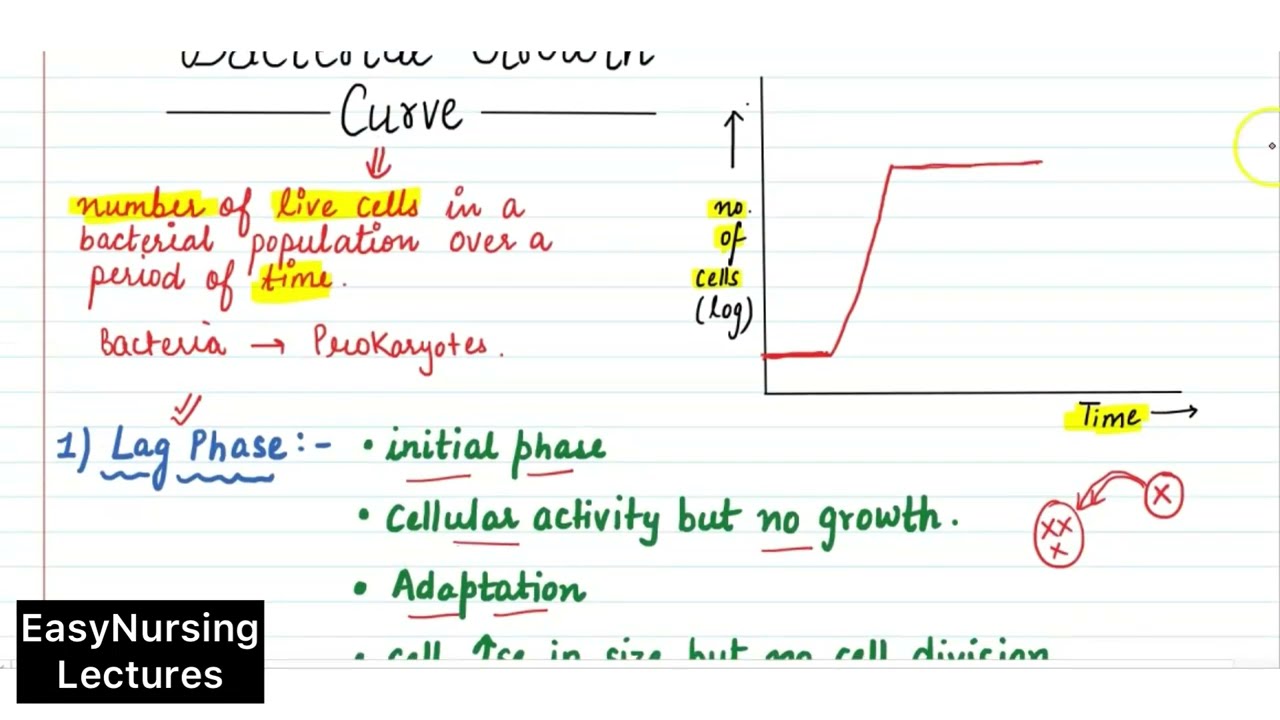 Bacterial Growth
Curve
number of live cells in a
bacterial population over a
period of time.
Bacteria → Prokaryotes.
↑
no.
of
cells
(log)
Time →
1) Lag Phase :- • initial phase
• Cellular activity but no growth.
• Adaptation
• cell ↑se in size but no cell division
X
XX
X
EasyNursing
Lectures